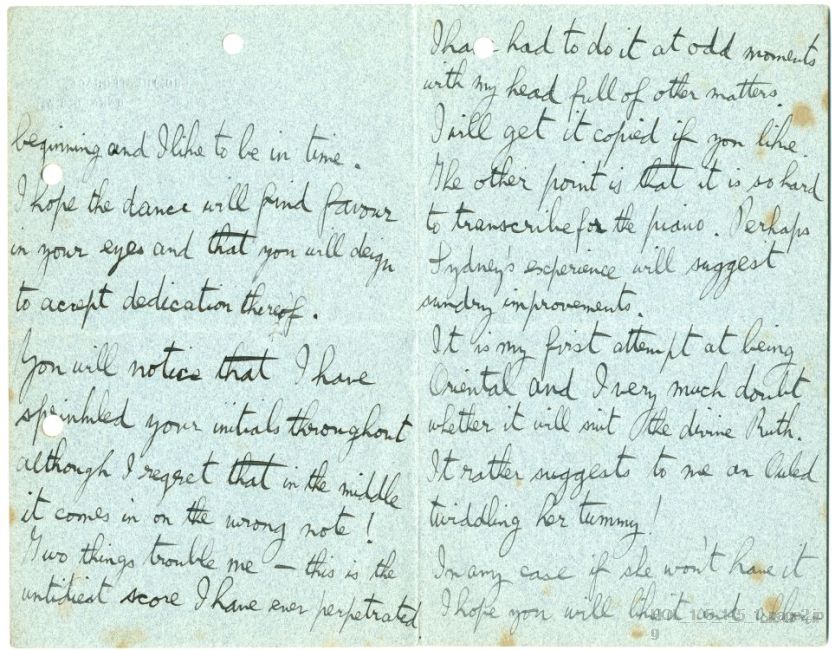 beginning and I like to be in time.
I hope the dance will find favour
in your eyes and that you will deign
to accept dedication thereof.
You will notice that I have
sprinkled your initials throughout
although I regret that in the middle
it comes in on the wrong note!
Two things trouble me – this is the
untidiest score I have ever perpetrated
I have had to do it at odd moments
with my head full of other matters.
I will get it copied if you like.
The other point is that it is so hard
to transcribe for the piano. Perhaps
Sydney's experience will suggest
sundry improvements.
It is my first attempt at being
Oriental and I very much doubt
whether it will suit the divine Ruth.
It rather suggests to me an Ouled
twiddling her tummy!
In any case if she won't have it
I hope you will like it and